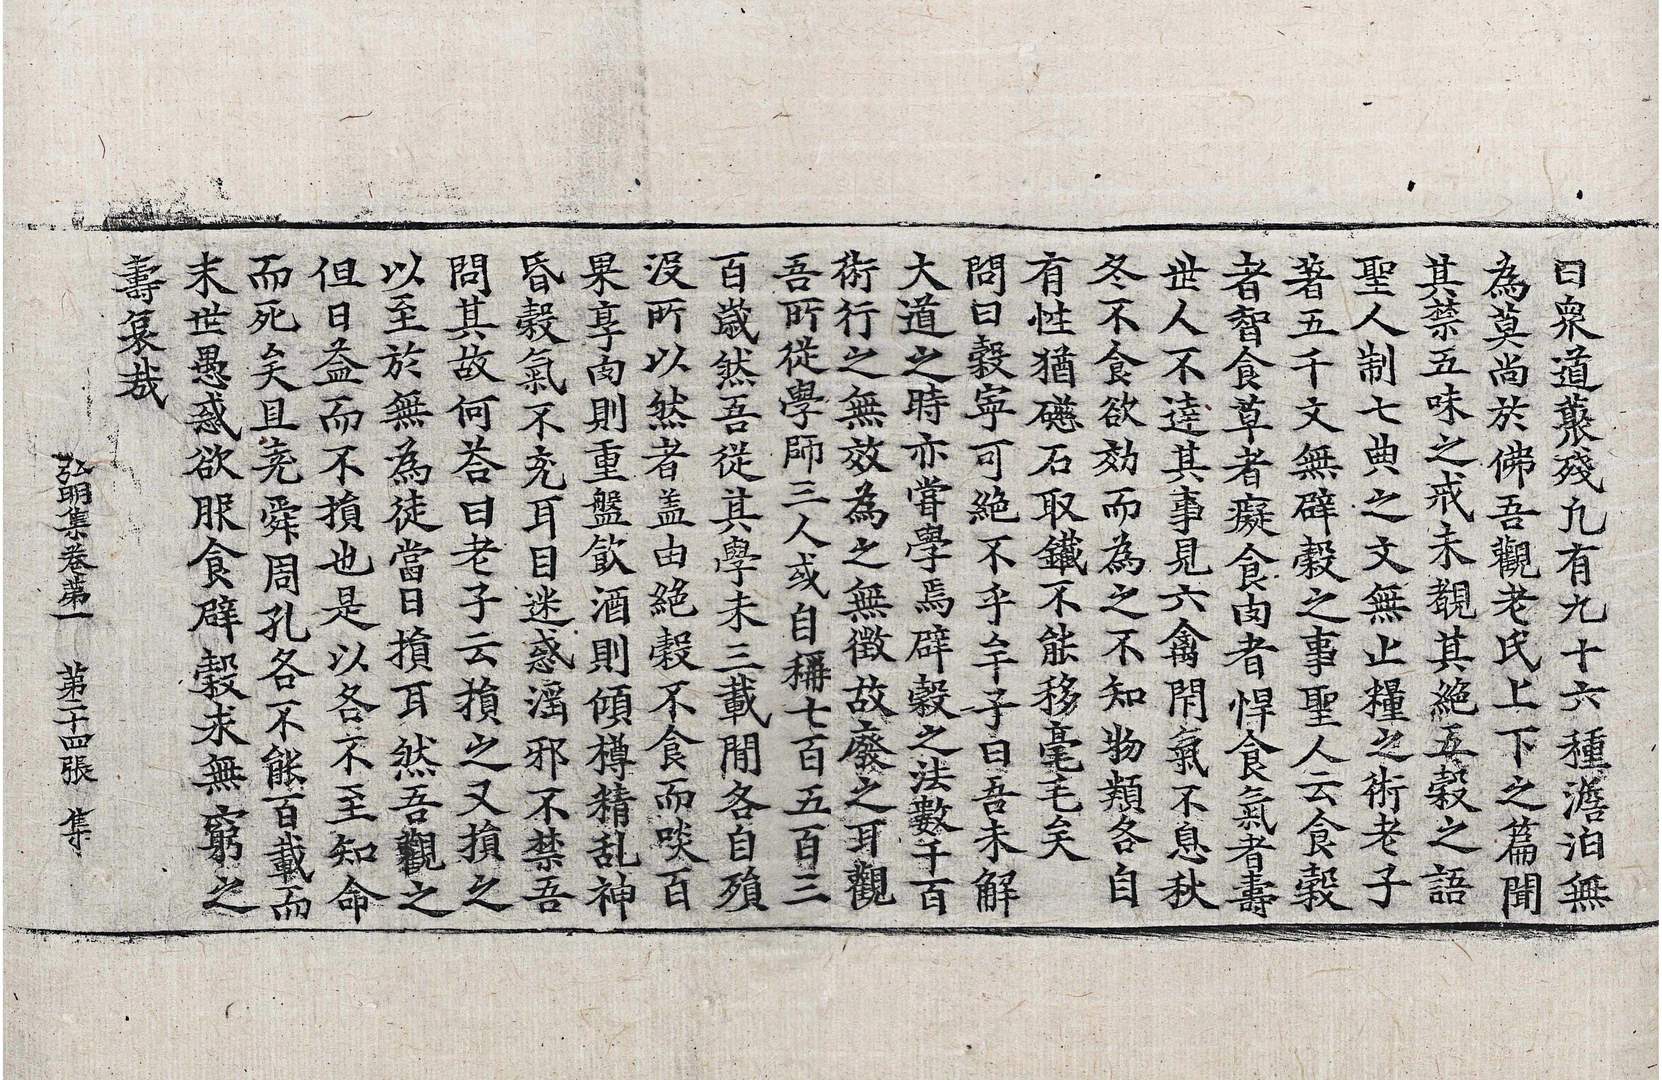 曰衆道藂殘九有九十六種澹泊無
為莫尚於佛吾觀老氏上下之篇聞
其禁五味之戒未覩其絶五穀之語
聖人制七典之文無止糧之術老子
著五千文無辟穀之事聖人云食穀
者智食草者癡食肉者悍食氣者壽
世人不達其事見六禽閇氣不息秋
冬不食欲効而為之不知物類各自
有性猶礠石取鐵不能移毫毛矣
問曰穀寧可絶不乎牟子曰吾未解
大道之時亦嘗學焉辟穀之法數千百
術行之無效為之無徵故廢之耳觀
吾所從學師三人或自稱七百五百三
百歲然吾從其學未三載閒各自殞
没所以然者盖由絶穀不食而啖百
果享肉則重盤飲酒則傾樽精乱神
昏穀氣不充耳目迷惑滛邪不禁吾
問其故何荅曰老子云損之又損之
以至於無為徒當日損耳然吾觀之
但日益而不損也是以各不至知命
而死矣且堯舜周孔各不能百載而
末世愚惑欲服食辟穀求無窮之
壽哀㦲
弘明集卷第一 第二十四張 集